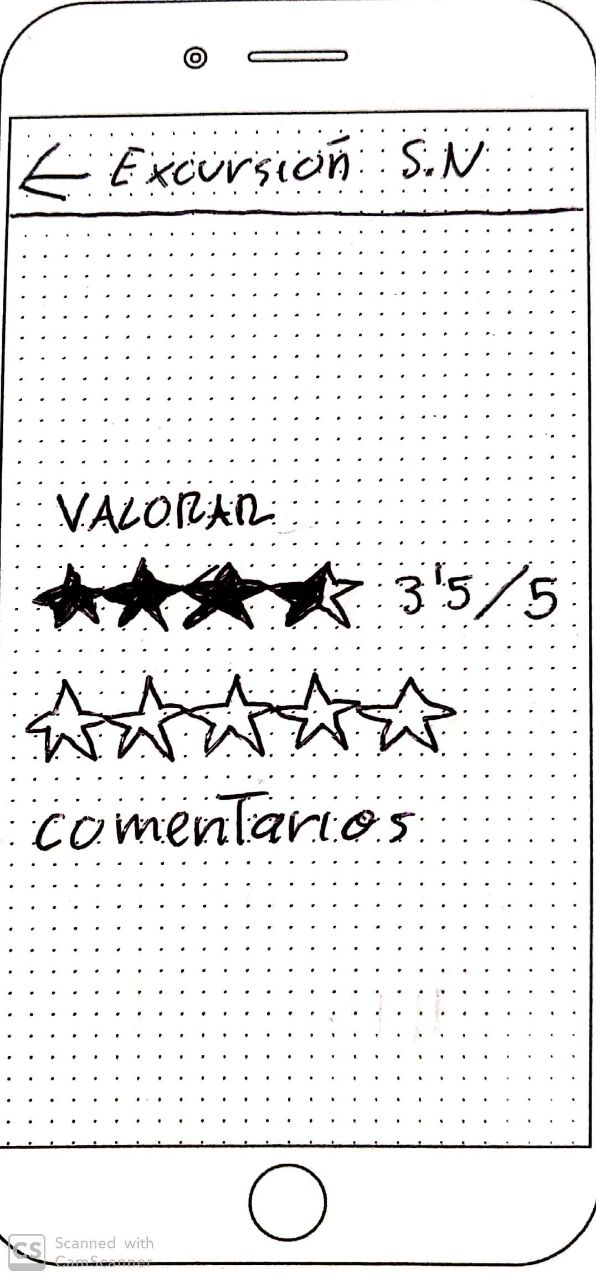 ← Excursión S.N
VALORAR
3'5/5
comentarios
CS Scanned with
CamScanner